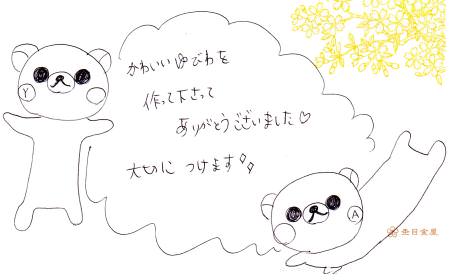 かわいいゆびわを
作って下さって
ありがとうございました♡
大切に つけます!!
Y
A
杢目金屋